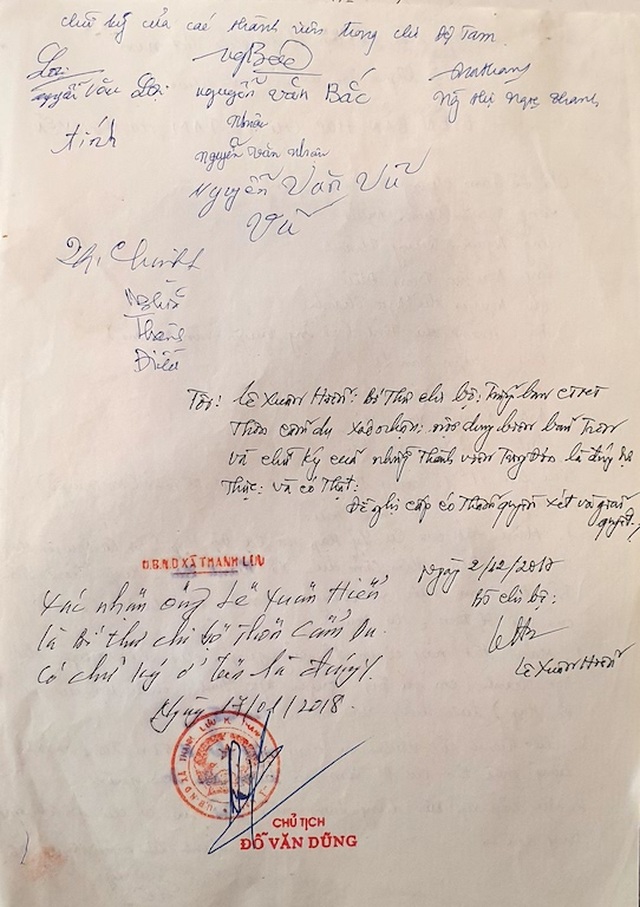 chữ ký của các thành viên trong chi bộ Tam
Lợi
nguyễn Văn Lợi
NgBắc
nguyễn văn Bắc
Thanh
Ng thị Ngọc Thanh
tính
Nhâu
nguyễn văn nhâu
Nguyễn Văn Vũ
Vũ
Chinh
Nghĩa
Thắng
Điều
Tôi: Lê Xuân Hiển: Bí Thư chi bộ: Trưởng ban CTMT
Thôn cẩm du xác nhận: nội dung biên bản Trên
và chữ ký của những Thành viên Trong Đơn là đúng sự
Thực: và có Thật:
Đề nghị cấp có Thẩm quyền xét và giải
quyết.
U.B.N.D XÃ THANH LƯU
Xác nhận ông Lê Xuân Hiển
là Bí thư chi bộ thôn Cẩm Du.
Có chữ ký ở trên là đúng.
Ngày 17/01/2018.
Ngày 2/12/2017
Bí chi bộ:
Lê Xuân Hiển
U.B.N.D XÃ THANH LƯU
CHỦ TỊCH
ĐỖ VĂN DŨNG